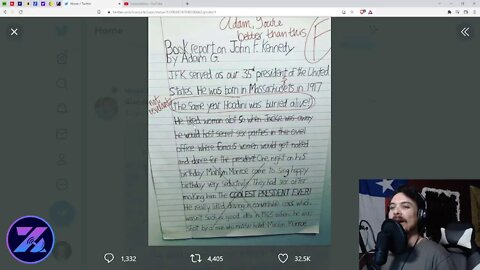 Home / Twitter
Adam, You're
better than this
F
Book report on John F. Kennedy
by Adam G.
JFK served as our 35th president of the United
States. He was born in Massachusetts in 1917
not relevant
(the same year Hoodini was buried alive)
He liked woman alot so when Jackie was away
he would host secret sex parties in the oval
office where famous women would get naked
and dance for the president. One night on his
birthday Marilyn Monroe came to sing happy
birthday very seductivly. They had sex after
making him the COOLEST PRESIDENT EVER!
He really liked driving in convertable cars which
wasn't such a good idea in 1963 when he was
shot by a man who maybe hated Marilyn Monroe
1,332
4,405
32.5K